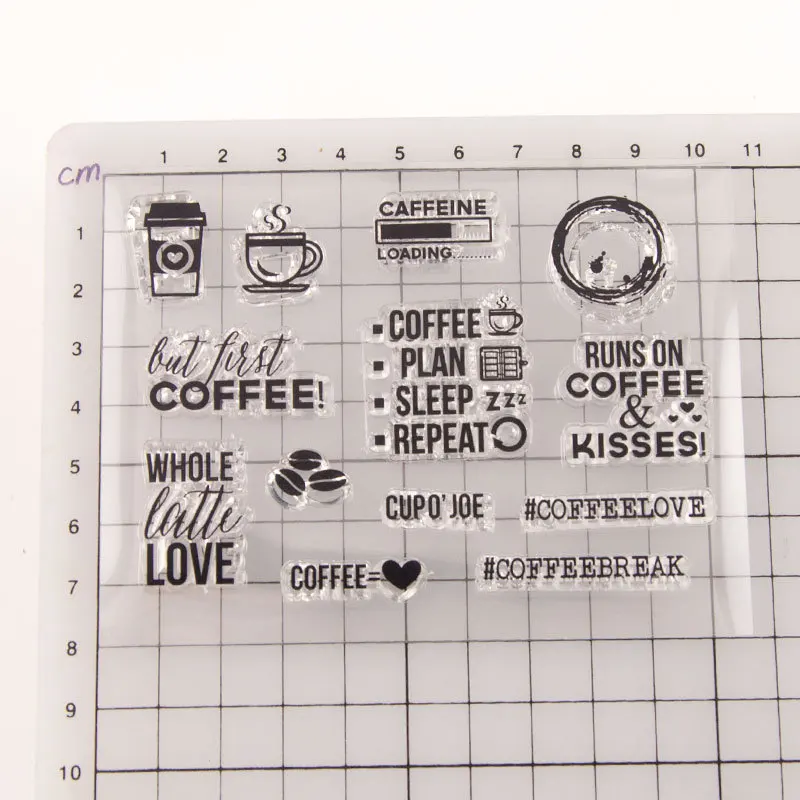 1 2 3 4 5 6 7 8 9 10 11
cm
1
2
3
4
5
6
7
8
9
10
CAFFEINE
LOADING.........
but first
COFFEE!
▪COFFEE
▪PLAN
▪SLEEP zzz
▪REPEAT
RUNS ON
COFFEE
&
KISSES!
WHOLE
latte
LOVE
CUP O' JOE
#COFFEELOVE
COFFEE=
#COFFEEBREAK